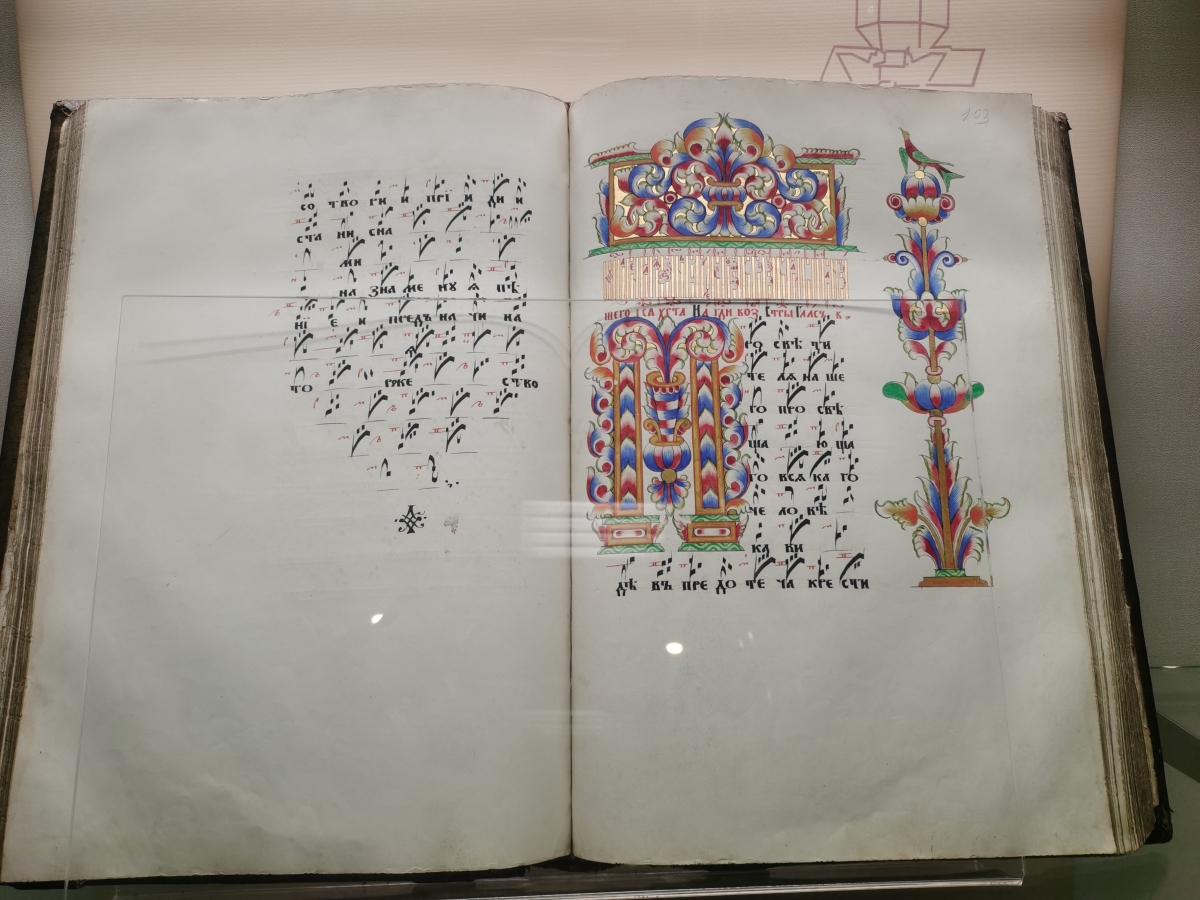 со тво ри и при и ди и
ста ни сна
ми
на зна ме ну ѧ пѣ
ні е и предъ на чи на
то рже ство
103
шего іса хрта На гди воз. Стры Гласъ, в҃.
го свѣ чи
че ѧѧ на ше
го про свѣ
ща ю ща
го всѧ ка го
че ло вѣ
ка ви
дѣ въ пре до те ча кре сти